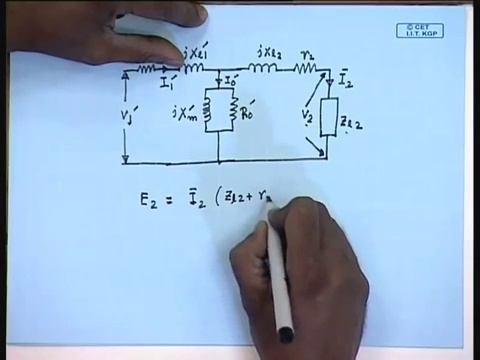 © CET
I.I.T. KGP
jXl1′ jXl2 r2
I̅1′ I̅0′ I̅2
V1′ jXm′ R0′ V2 Zl2
E2 = I̅2 (Zl2 + r2